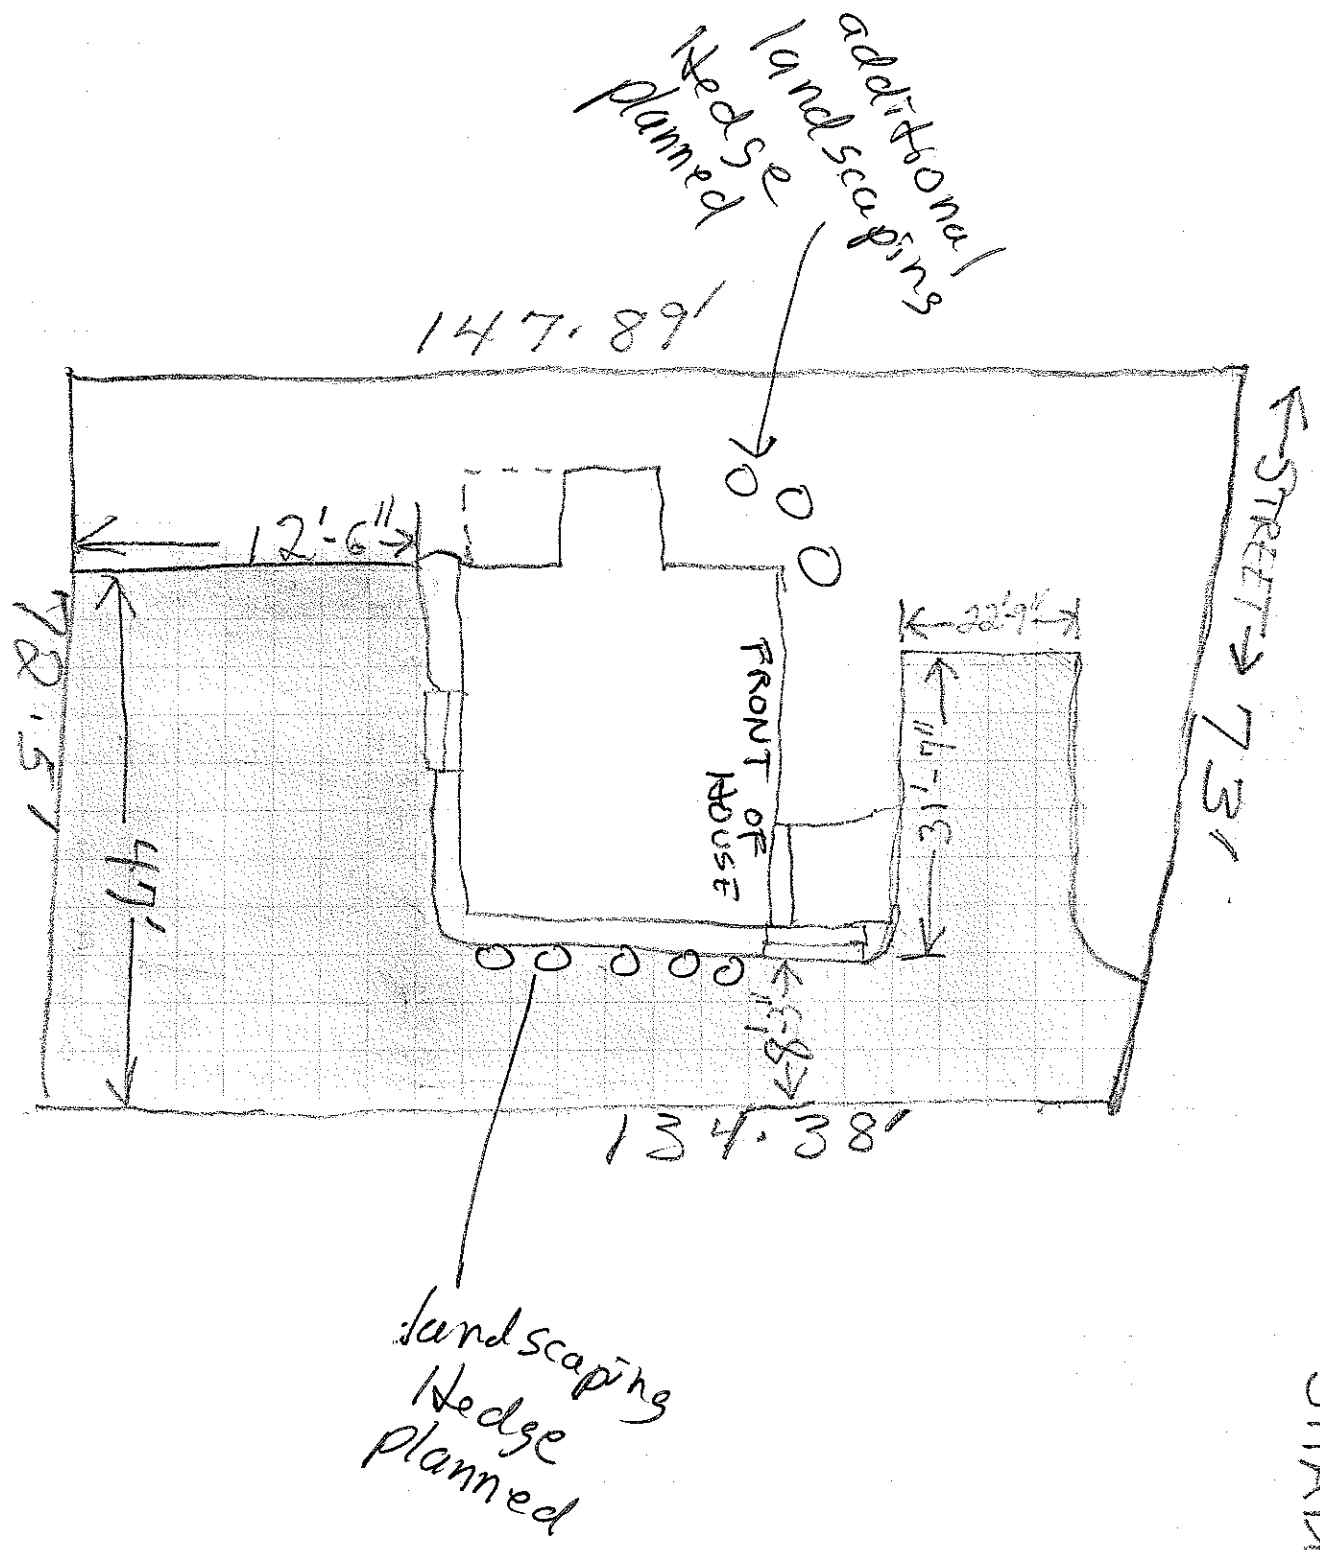 additional
landscaping
Hedge
planned
147.89'
←STREET→ 73'
12'-6"
22'-9"
FRONT OF
HOUSE
31'-7"
78.51
47'
8'-3"
134.38'
landscaping
Hedge
planned